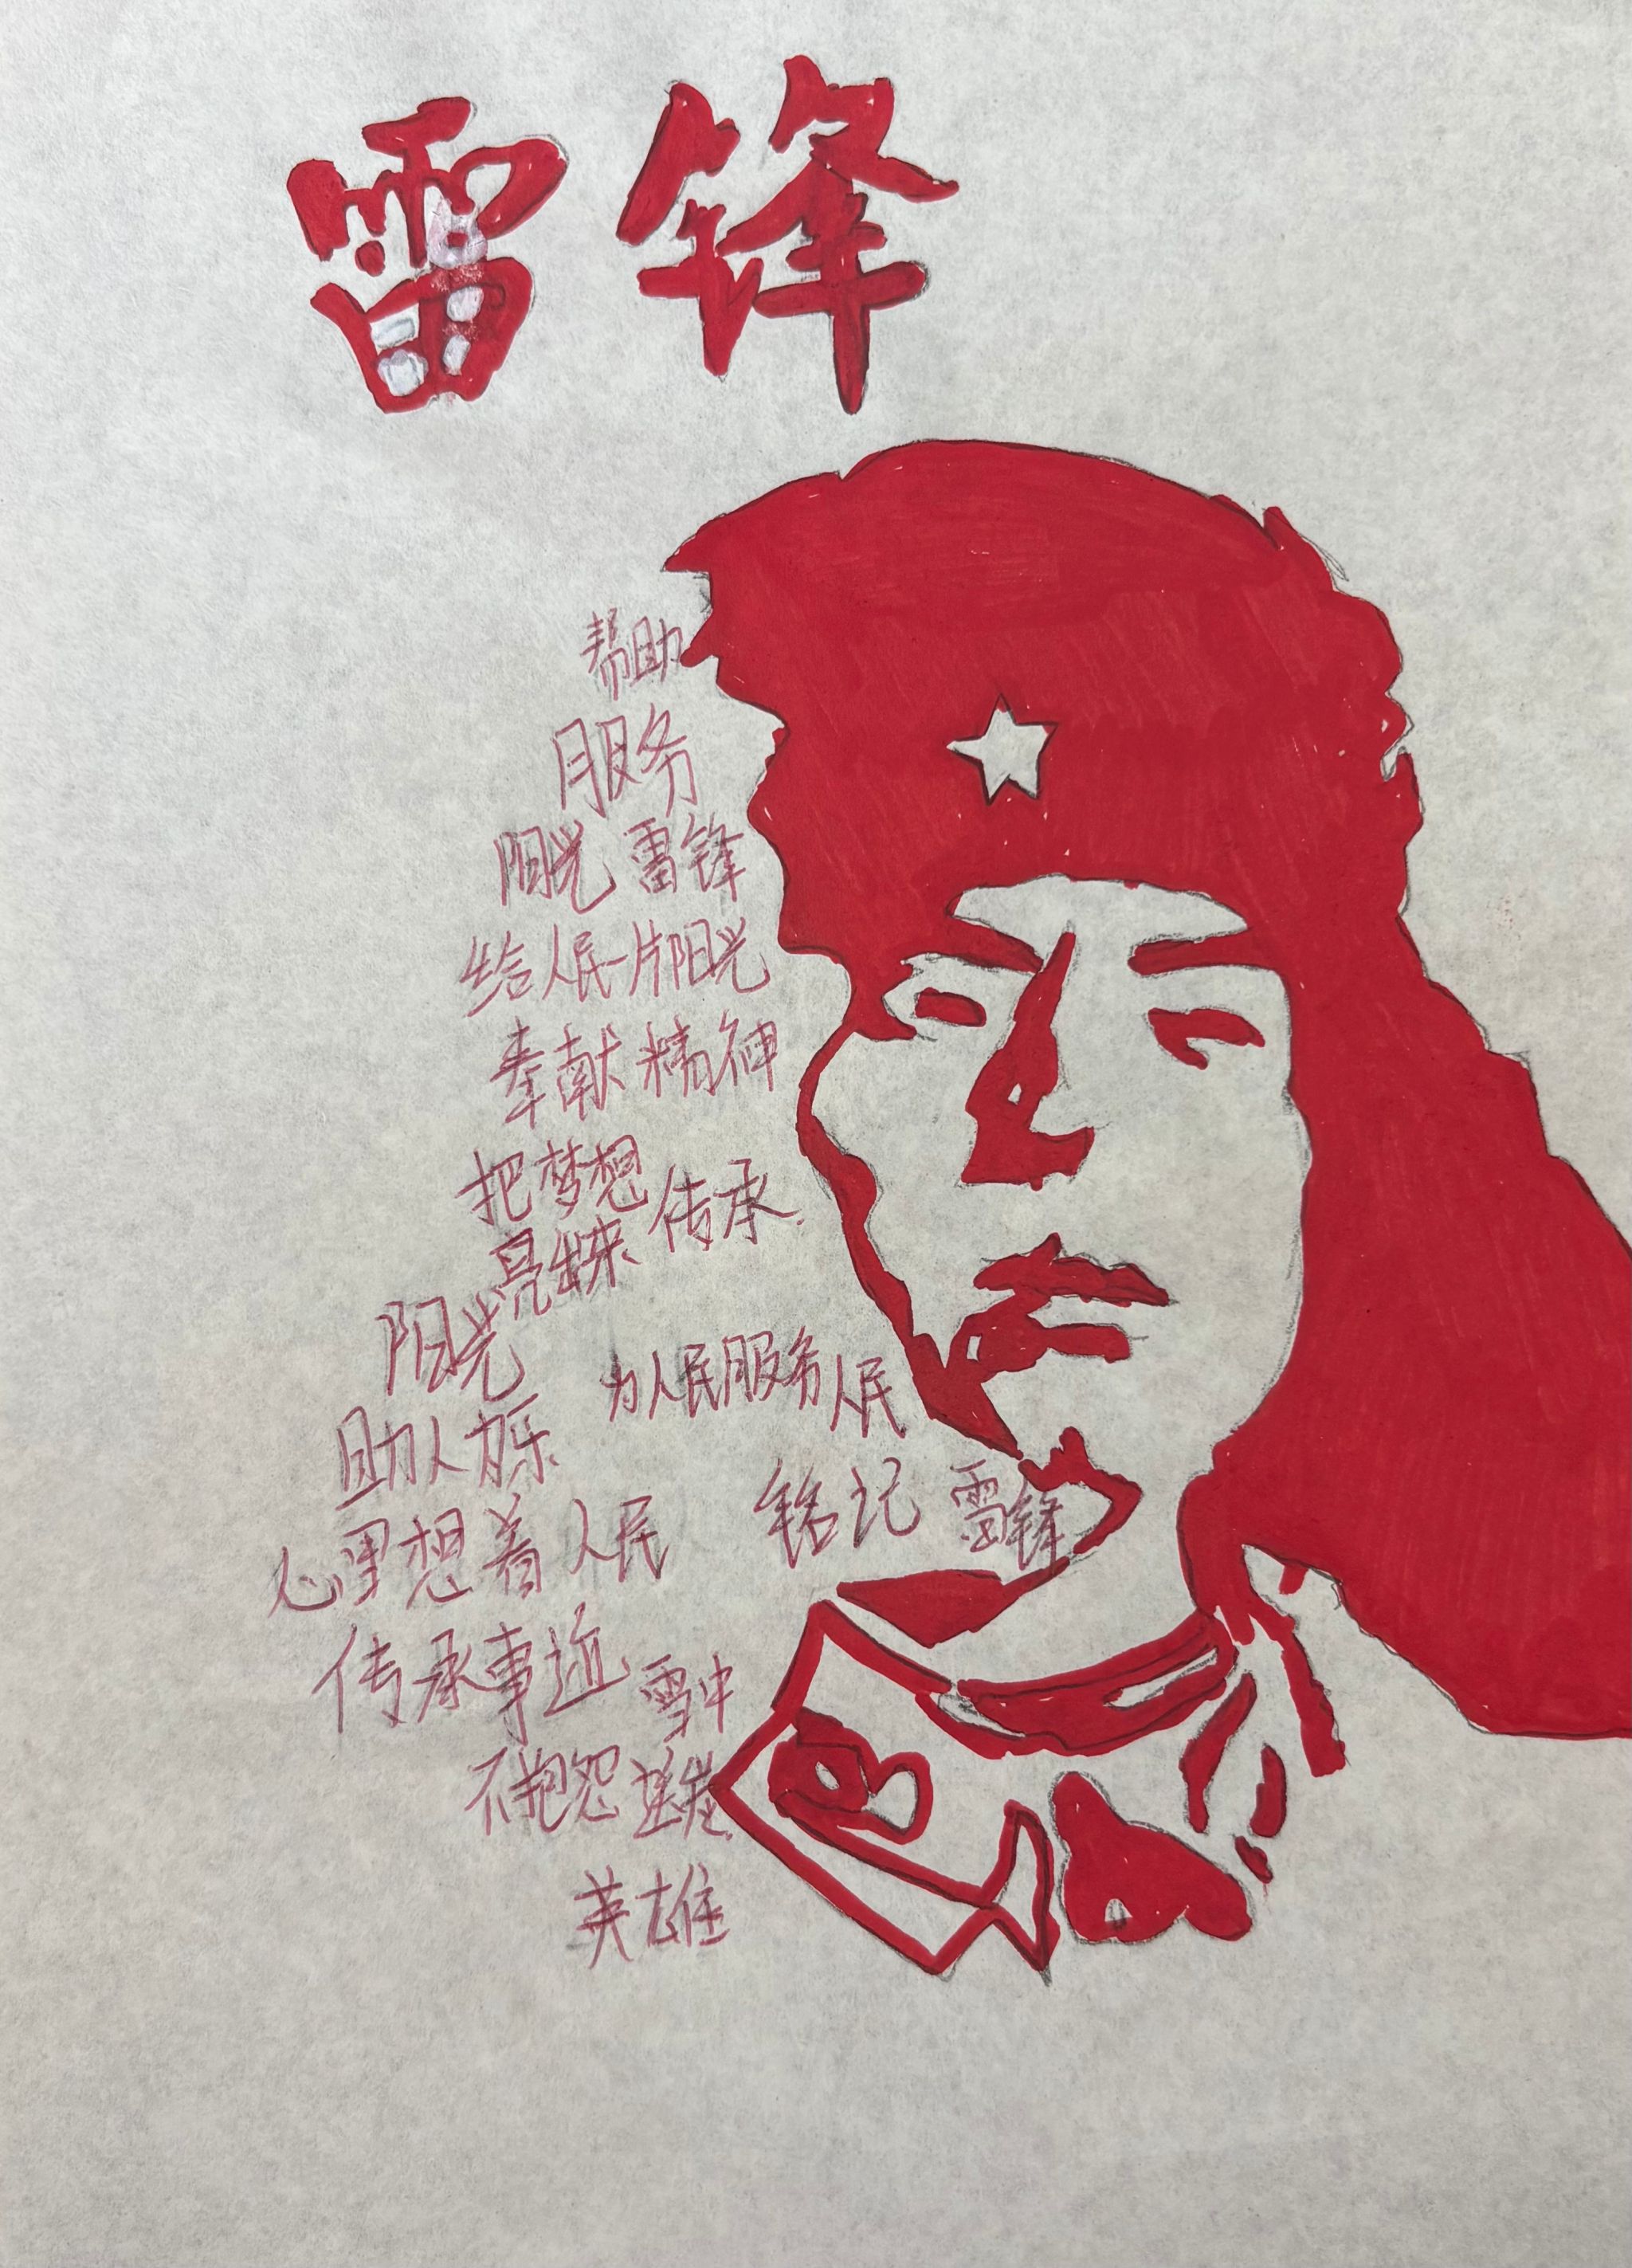 雷锋
帮助
服务
阳光 雷锋
给人民一片阳光
奉献 精神
把梦想
亮出来 传承
阳光
为人民服务人民
助人为乐
铭记 雷锋
心里想着人民
传承事迹
雪中
不抱怨 送炭
英雄